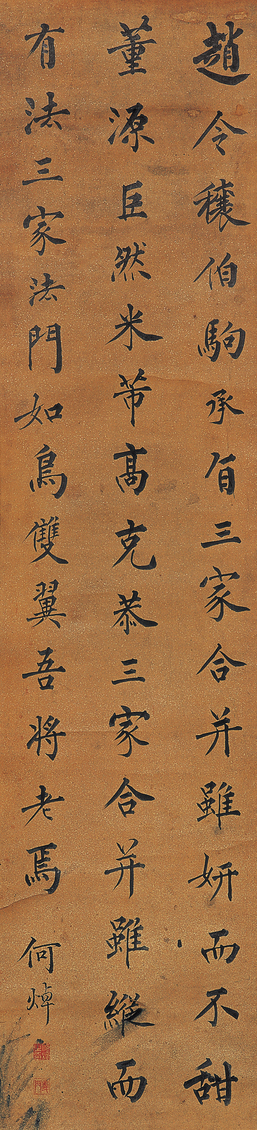 趙令穰伯駒承旨三家合并雖妍而不甜
董源巨然米芾高克恭三家合并雖縱而
有法三家法門如鳥雙翼吾將老焉
何焯